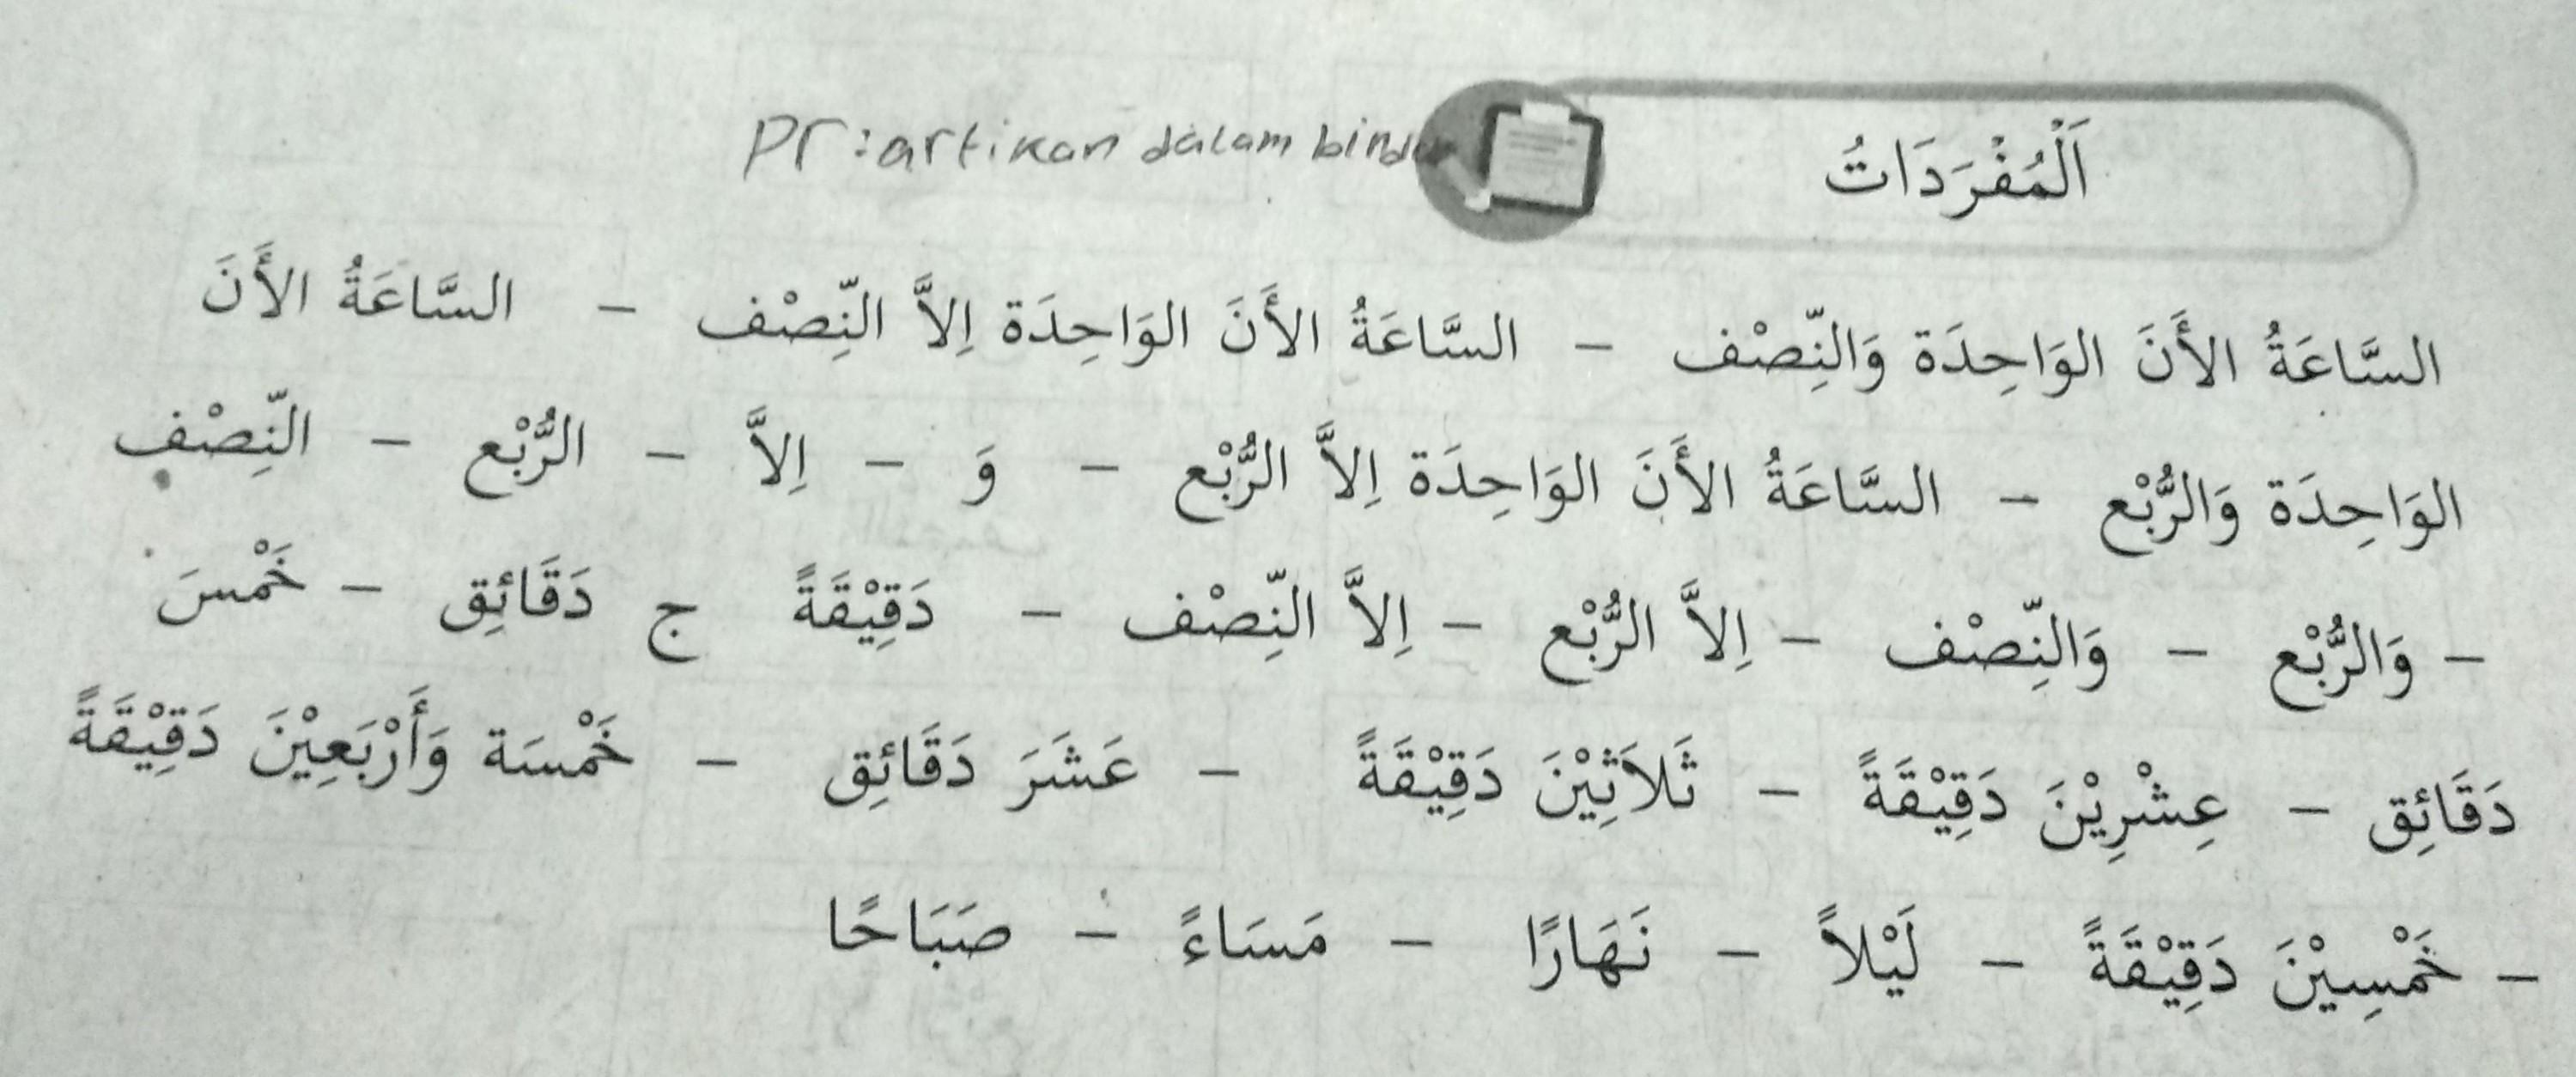 اَلْمُفْرَدَاتُ
PR : artikan dalam binder
السَّاعَةُ الأَنَ الوَاحِدَة وَالنِّصْف – السَّاعَةُ الأَنَ الوَاحِدَة اِلاَّ النِّصْف – السَّاعَةُ الأَنَ
الوَاحِدَة وَالرُّبْع – السَّاعَةُ الأَنَ الوَاحِدَة اِلاَّ الرُّبْع – وَ – اِلاَّ – الرُّبْع – النِّصْف
– وَالرُّبْع – وَالنِّصْف – اِلاَّ الرُّبْع – اِلاَّ النِّصْف – دَقِيْقَةً ج دَقَائِق – خَمْسَ
دَقَائِق – عِشْرِيْنَ دَقِيْقَةً – ثَلاَثِيْنَ دَقِيْقَةً – عَشَرَ دَقَائِق – خَمْسَة وَأَرْبَعِيْنَ دَقِيْقَةً
– خَمْسِيْنَ دَقِيْقَةً – لَيْلاً – نَهَارًا – مَسَاءً – صَبَاحًا